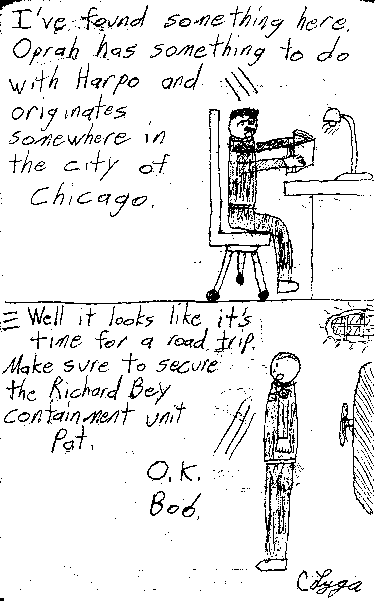 I've found something here.
Oprah has something to do
with Harpo and
originates
somewhere in
the city of
Chicago.
Well it looks like it's
time for a road trip.
Make sure to secure
the Richard Bey
containment unit
Pat.
O.K.
Bob.
C Lyga